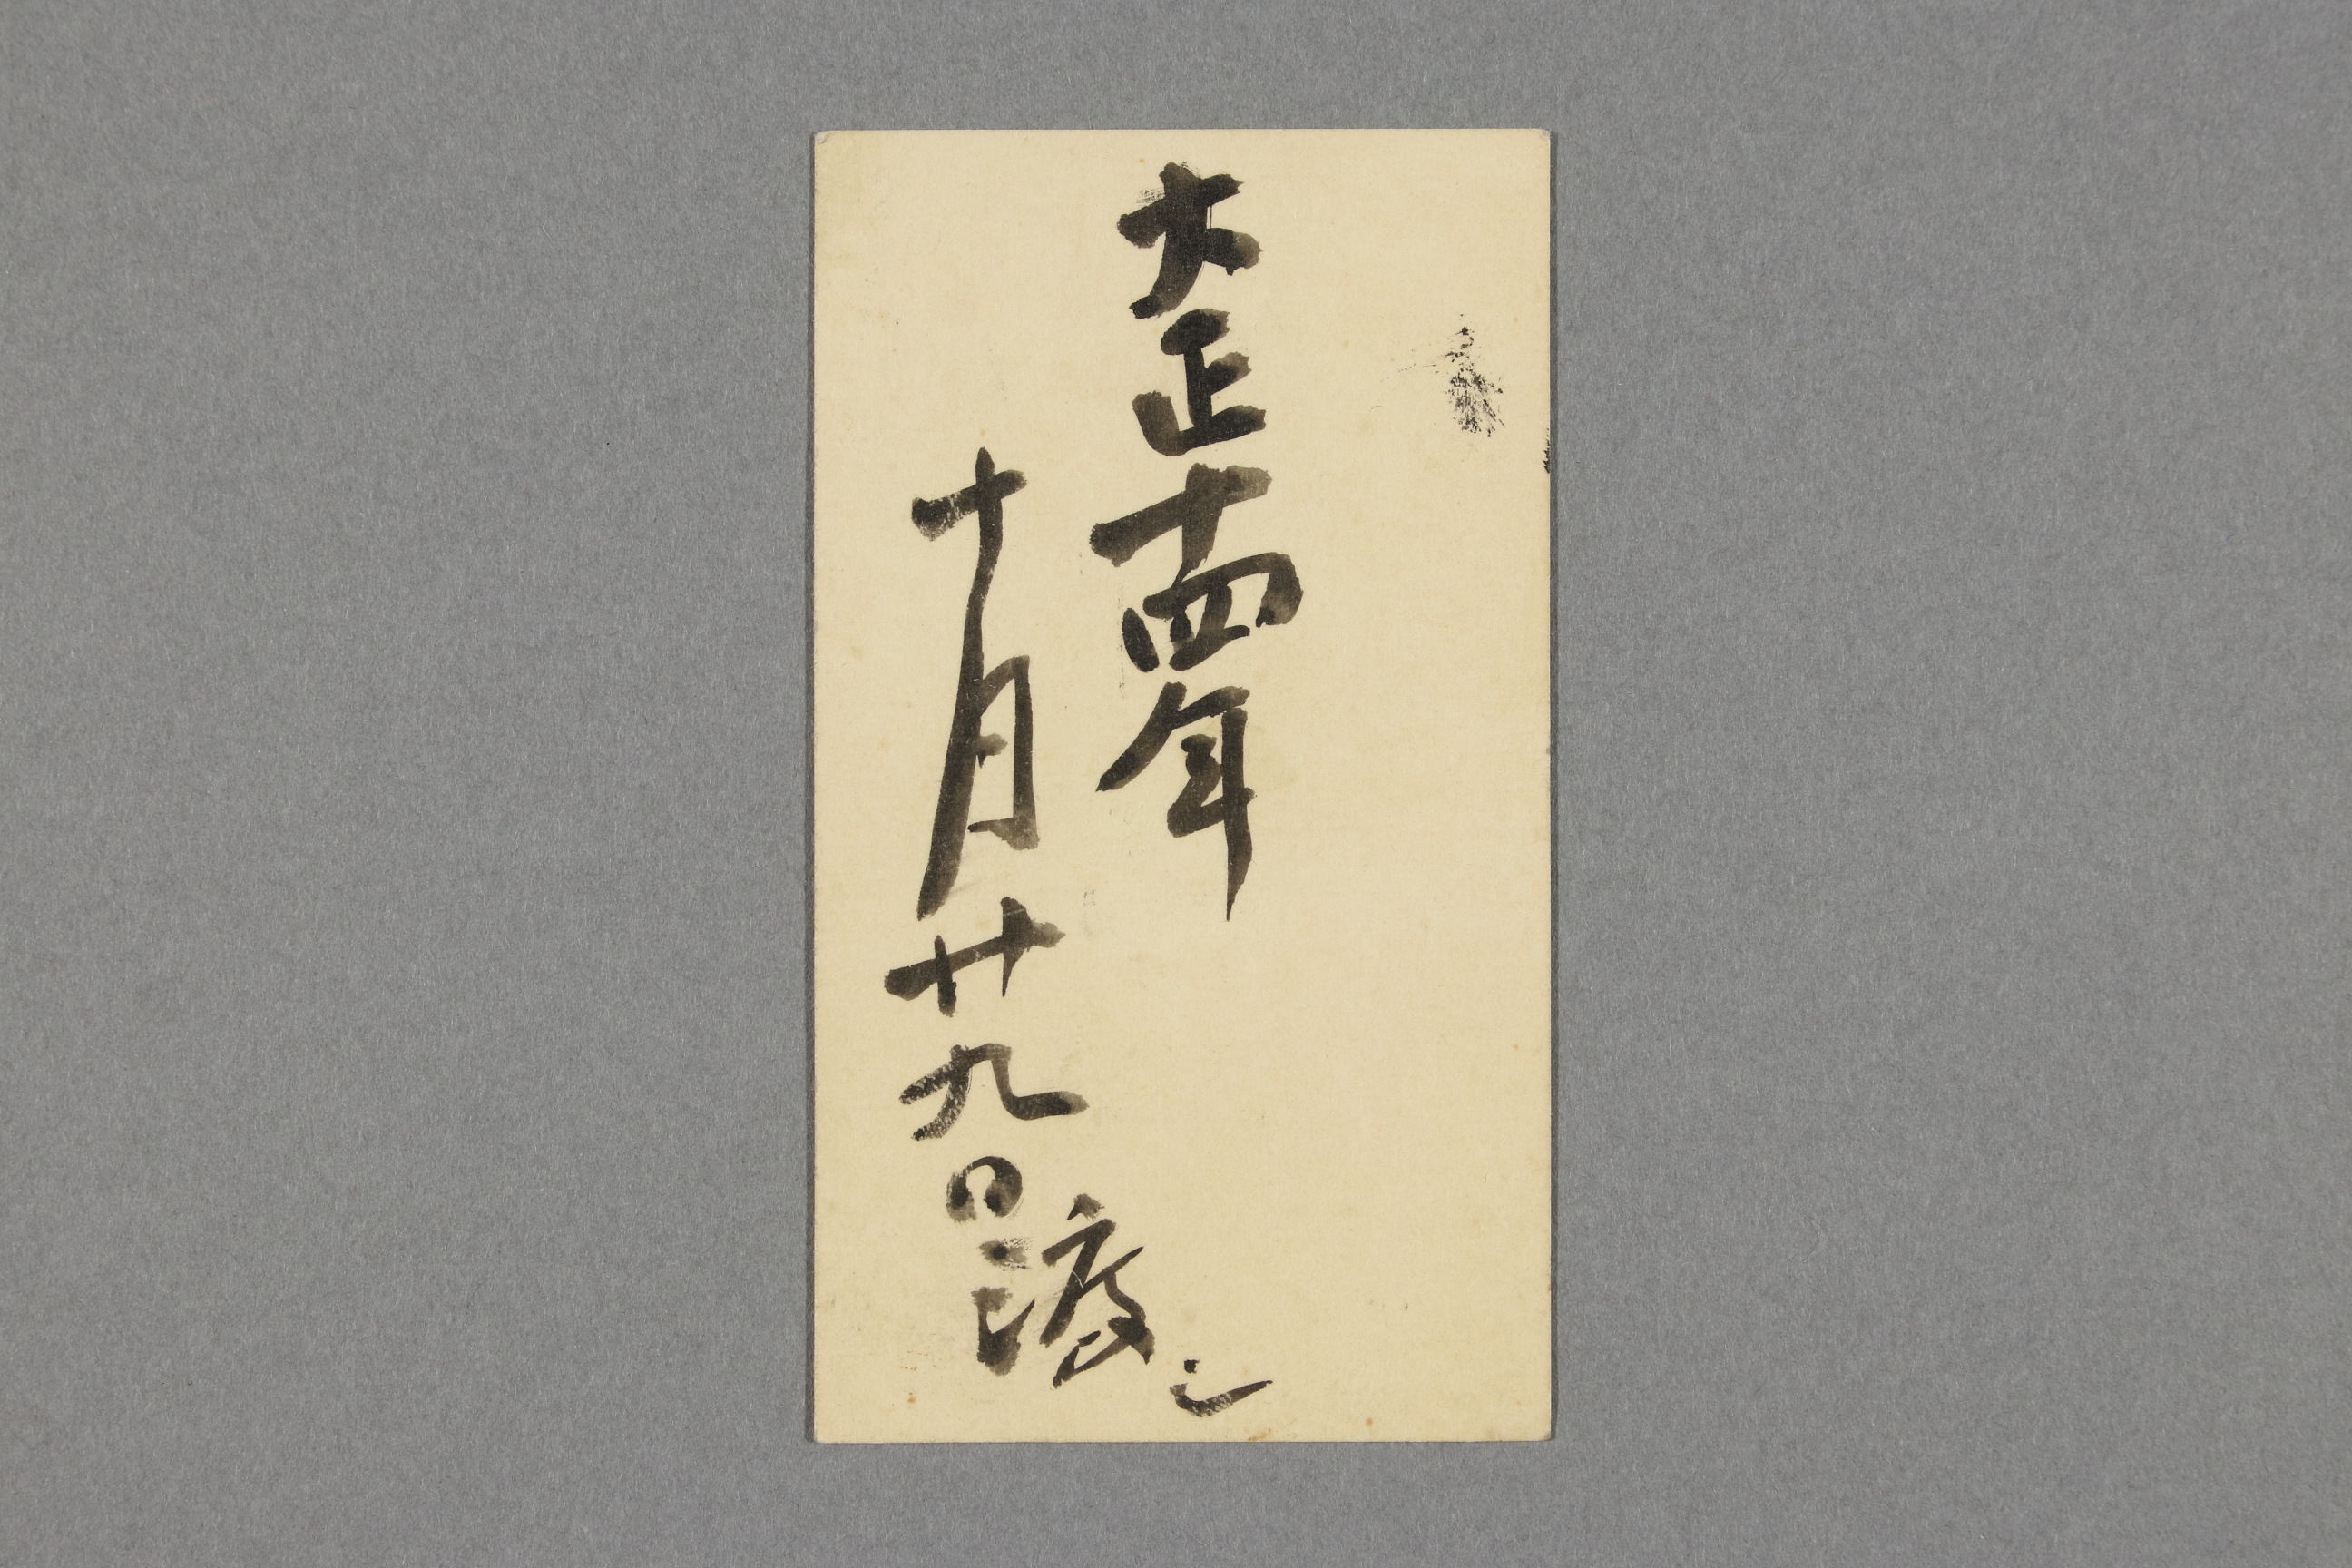 大正十四年
十月廿九日渡シ